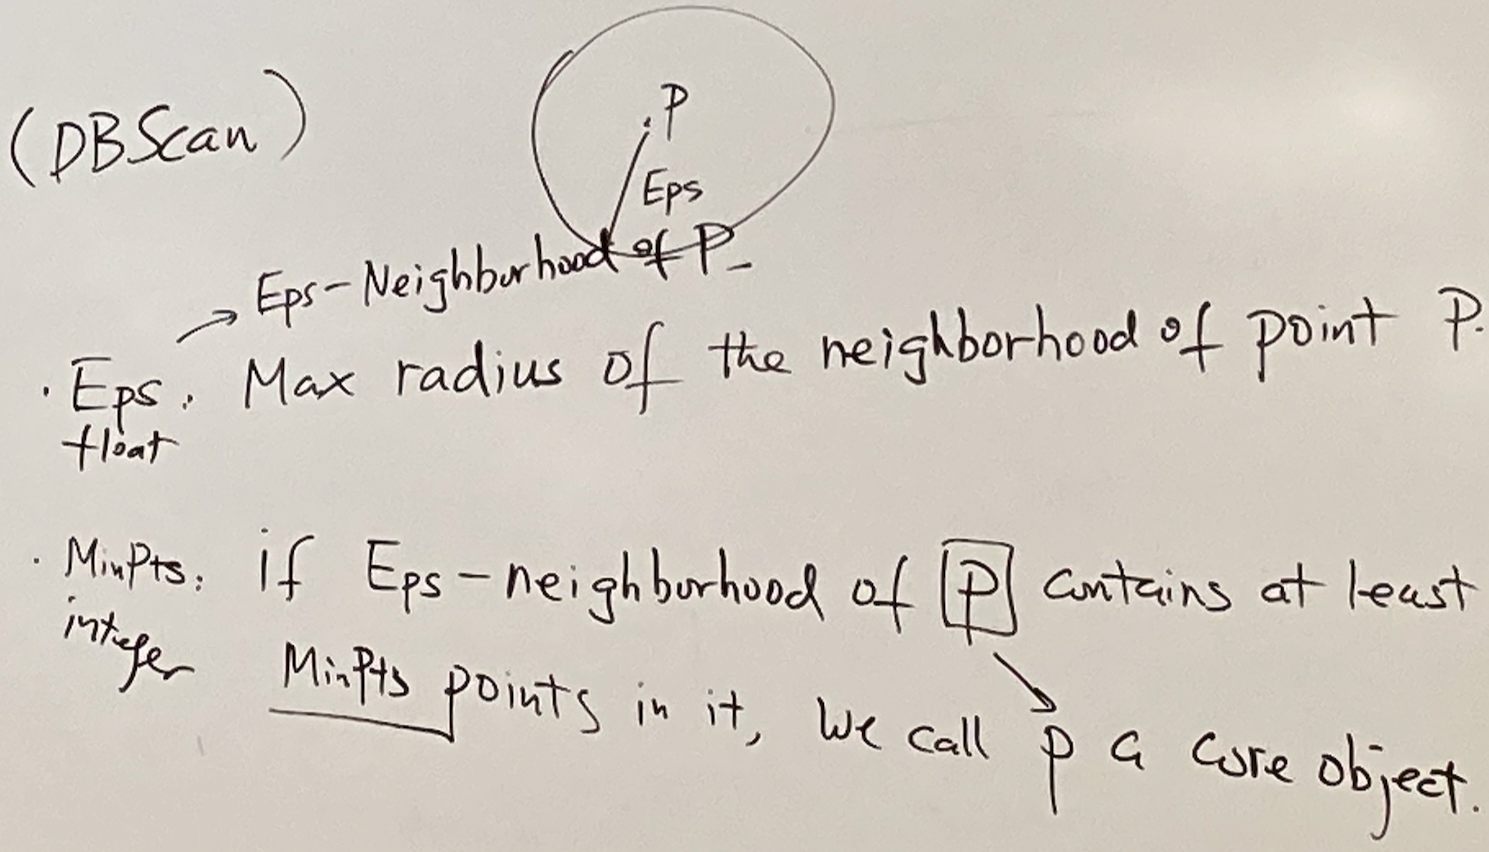 (DBScan)
P
Eps
Eps-Neighborhood of P
· Eps: Max radius of the neighborhood of point P.
float
· MinPts: if Eps-neighborhood of P contains at least
integer
MinPts points in it, we call P a core object.